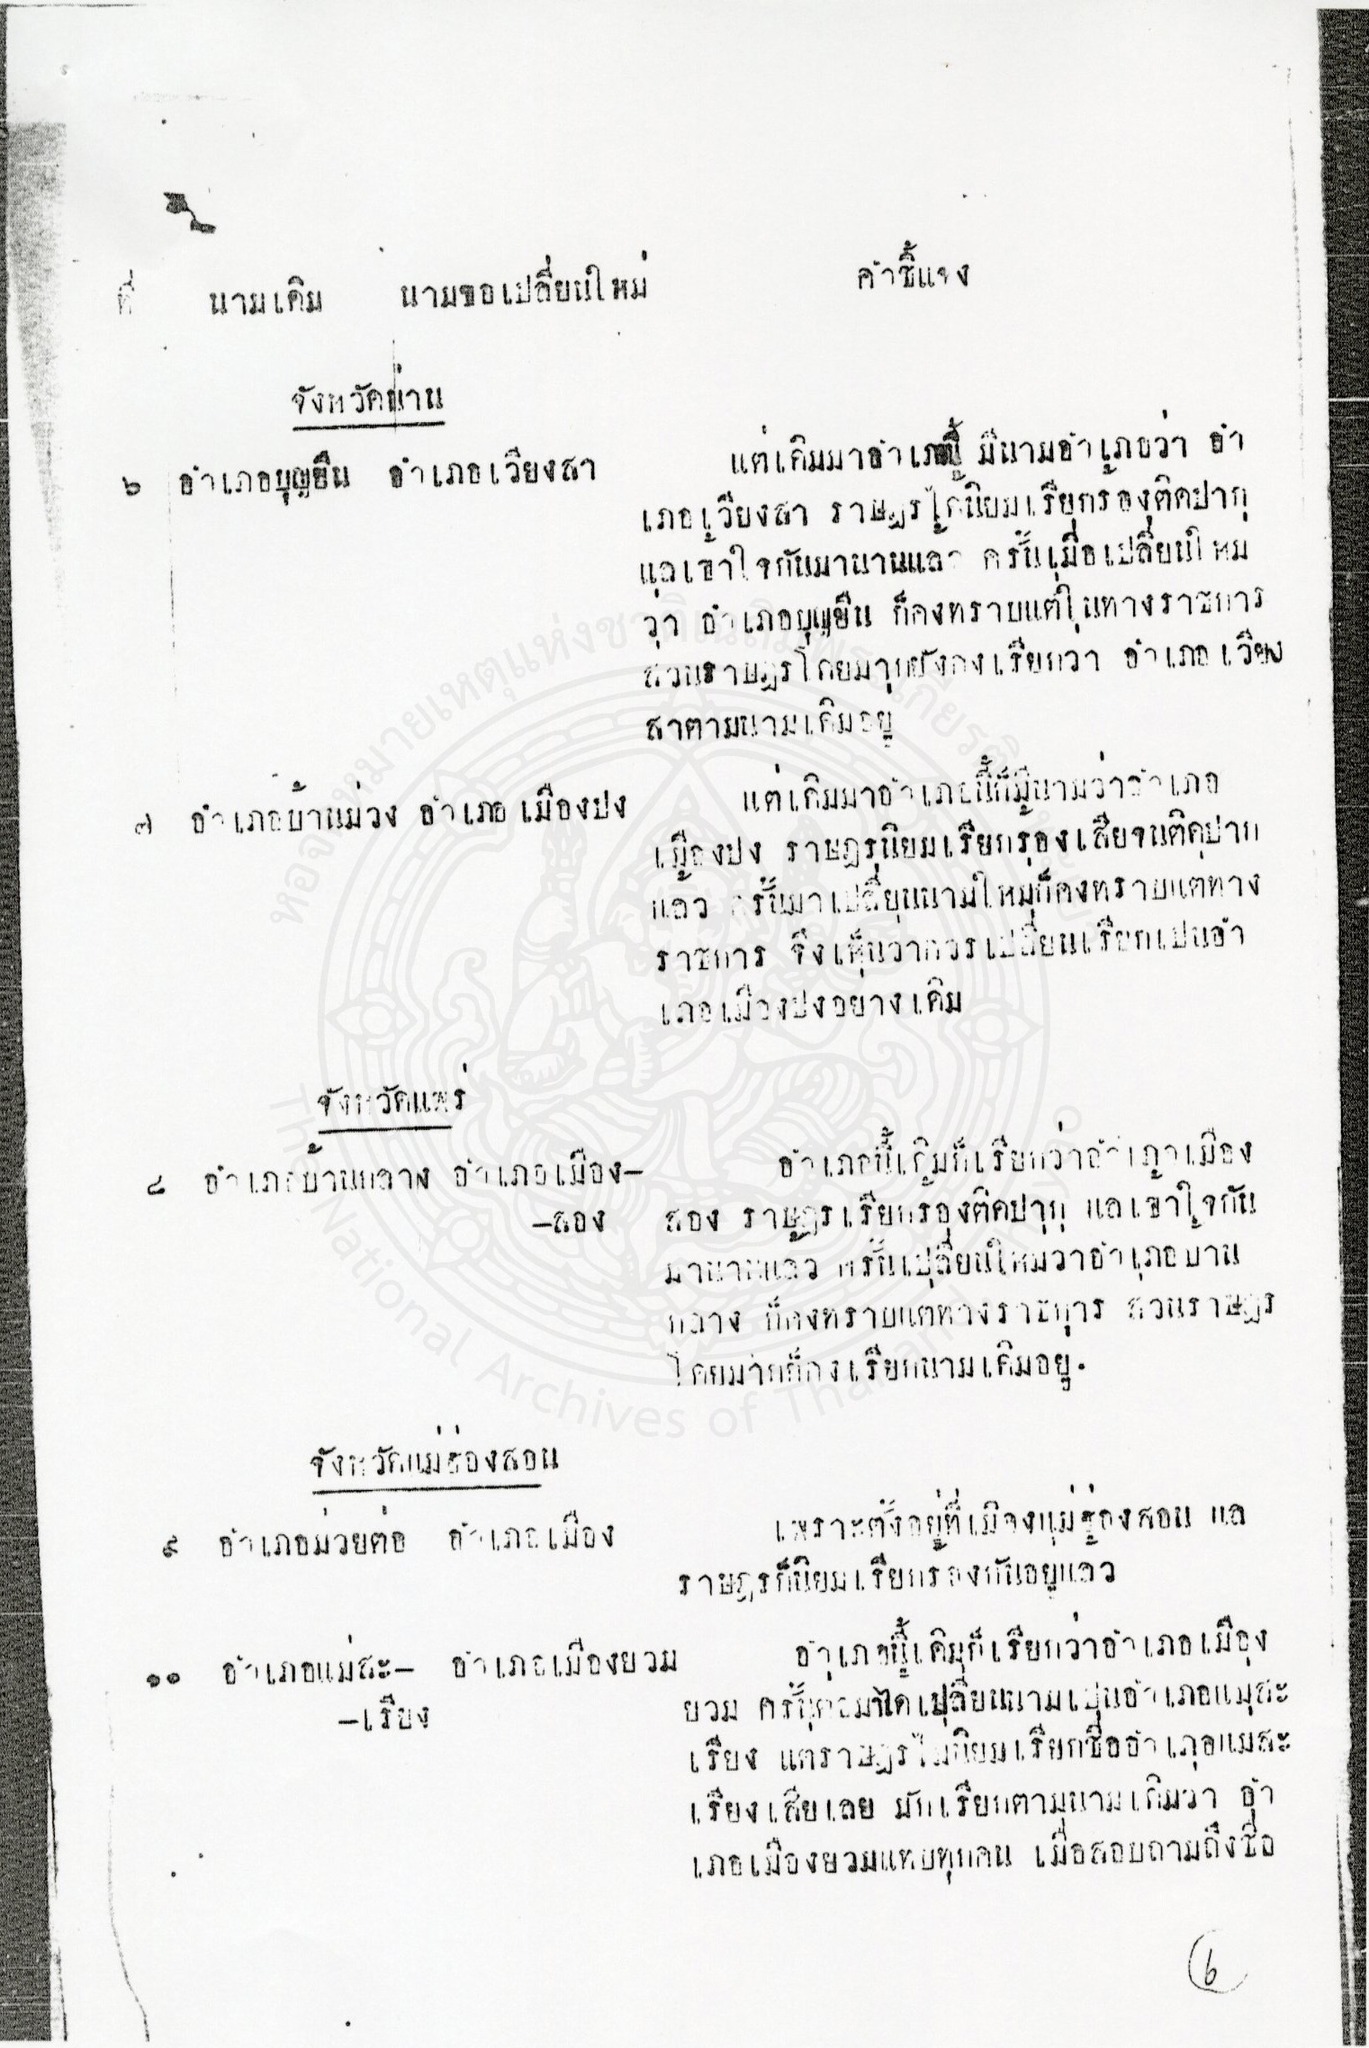 ที่ นามเดิม นามขอเปลี่ยนใหม่ คำชี้แจง
จังหวัดน่าน
๖ อำเภอบุญยืน อำเภอเวียงสา แต่เดิมมาอำเภอนี้ มีนามอำเภอว่า อำ
เภอเวียงสา ราษฎรได้นิยมเรียกร้องติดปาก
แลเข้าใจกันมานานแล้ว ครั้นเมื่อเปลี่ยนใหม่
ว่า อำเภอบุญยืน ก็คงทราบแต่ในทางราชการ
ส่วนราษฎรโดยมากยังคงเรียกว่า อำเภอเวียง
สาตามนามเดิมอยู่
๗ อำเภอบ้านม่วง อำเภอเมืองปง แต่เดิมมาอำเภอนี้ก็มีนามว่าอำเภอ
เมืองปง ราษฎรนิยมเรียกร้องเสียจนติดปาก
แล้ว ครั้นมาเปลี่ยนนามใหม่ก็คงทราบแต่ทาง
ราชการ จึงเห็นว่าควรเปลี่ยนเรียกเปนอำ
เภอเมืองปงอย่างเดิม
จังหวัดแพร่
๘ อำเภอบ้านกลาง อำเภอเมือง– อำเภอนี้เดิมก็เรียกว่าอำเภอเมือง
–สอง สอง ราษฎรเรียกร้องติดปาก แลเข้าใจกัน
มานานแล้ว ครั้นเปลี่ยนใหม่ว่าอำเภอบ้าน
กลาง ก็คงทราบแต่ทางราชการ ส่วนราษฎร
โดยมากก็คงเรียกนามเดิมอยู่.
จังหวัดแม่ฮ่องสอน
๙ อำเภอม่วยต่อ อำเภอเมือง เพราะตั้งอยู่ที่เมืองแม่ฮ่องสอน แล
ราษฎรก็นิยมเรียกร้องกันอยู่แล้ว
๑๐ อำเภอแม่สะ– อำเภอเมืองยวม อำเภอนี้เดิมก็เรียกว่าอำเภอเมือง
–เรียง ยวม ครั้นต่อมาได้เปลี่ยนนามเปนอำเภอแม่สะ
เรียง แต่ราษฎรไม่นิยมเรียกชื่ออำเภอแม่สะ
เรียงเสียเลย มักเรียกตามนามเดิมว่า อำ
เภอเมืองยวมแทบทุกคน เมื่อสอบถามถึงชื่อ
๖
หอจดหมายเหตุแห่งชาติ
The National Archives of Thailand